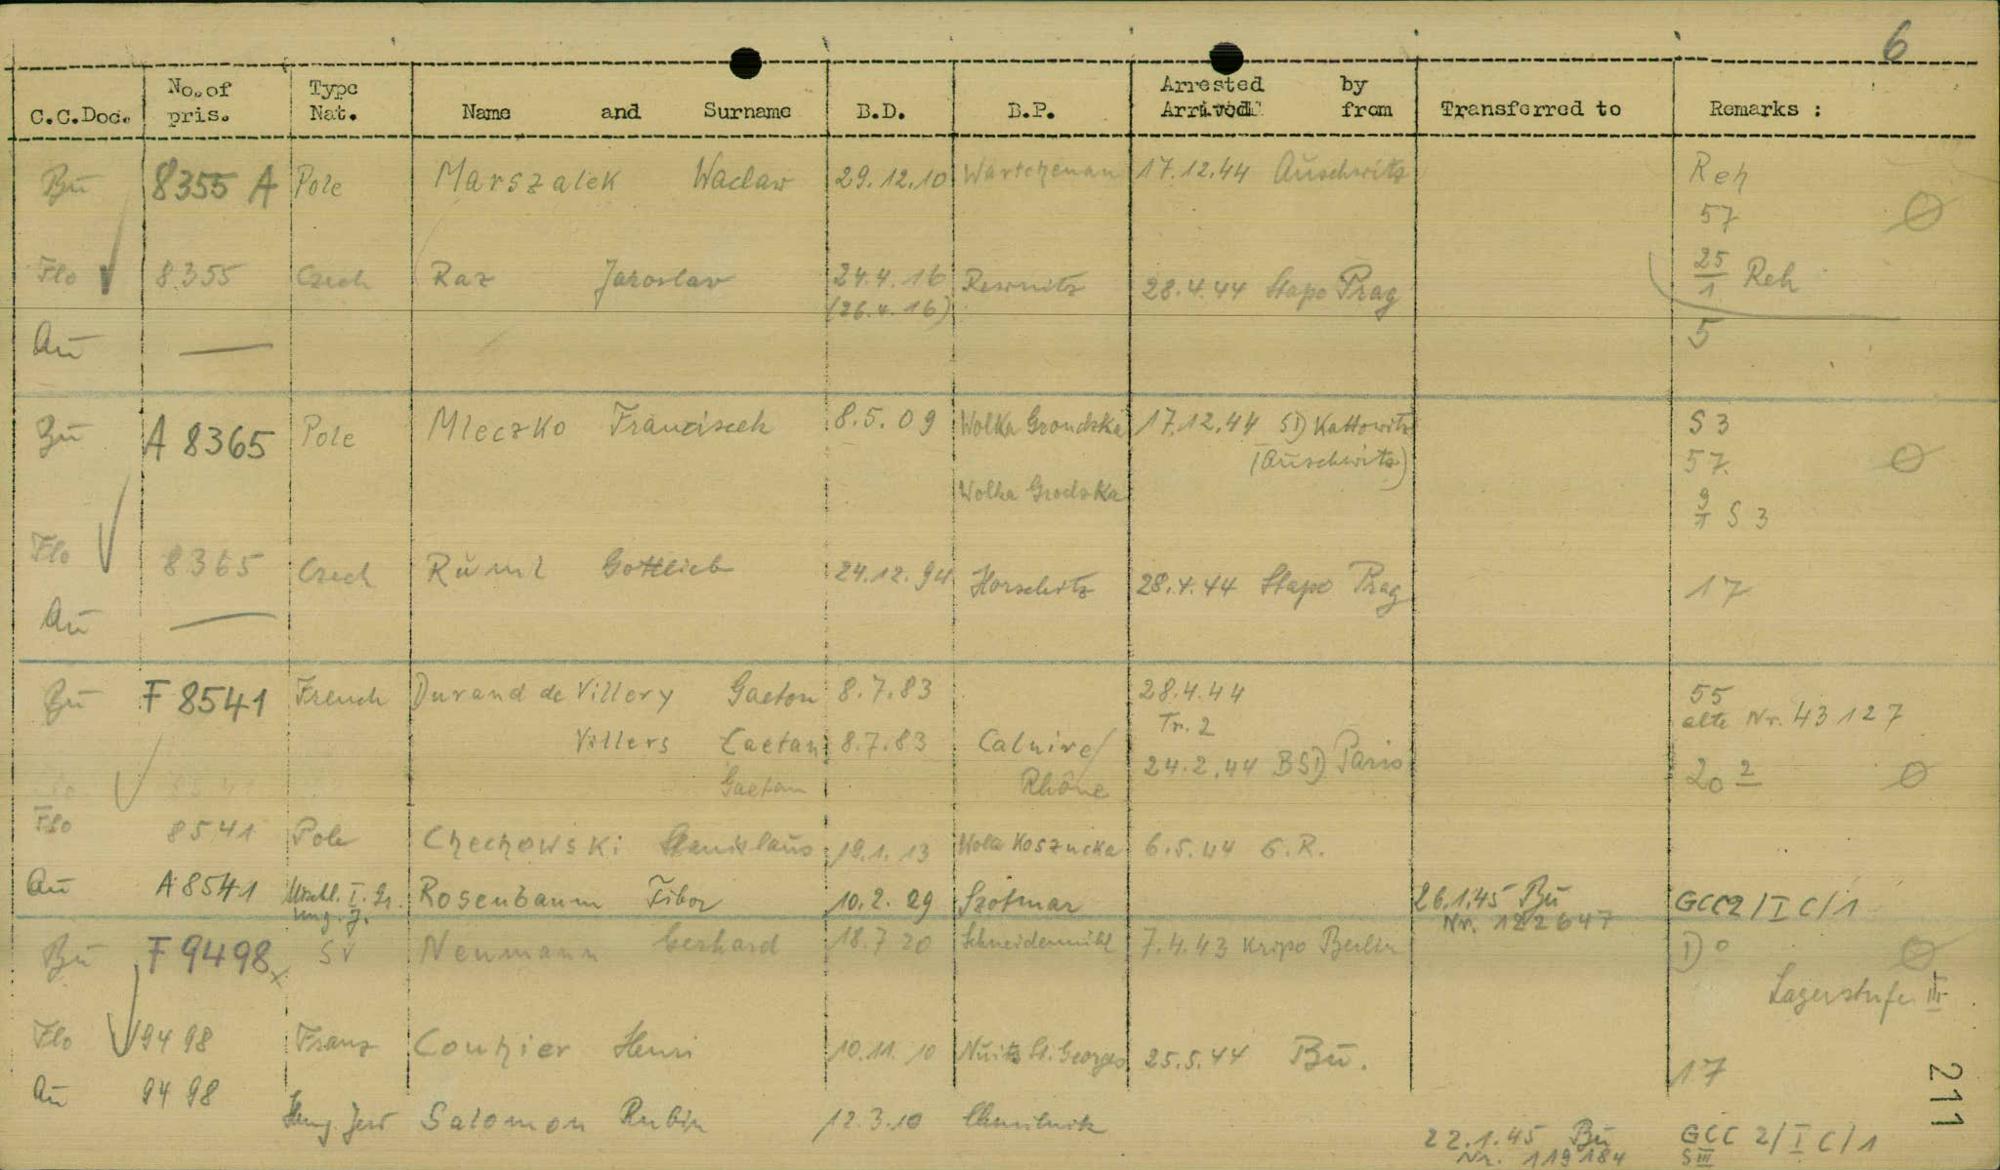 6
C.C.Doc. No.of pris. Type Nat. Name and Surname B.D. B.P. Arrested by Arrived from Transferred to Remarks :
Bū 8355 A Pole Marszalek Waclaw 29.12.10 17.12.44 Auschwitz Reh
57 ∅
Flo 8355 Czech Raz Jaroslav 24.4.16 Rewnitz 28.4.44 Stapo Prag 25/1 Reh
(26.4.16)
Aū — 5
Bū A 8365 Pole Mleczko Franciszek 8.5.09 Wolka Grondzka 17.12.44 SD Kattowitz S 3
(Auschwitz) 57. ∅
Wolka Grodzka 9/1 S 3
Flo 8365 Czech Rūml Gottlieb 24.12.94 Horschitz 28.4.44 Stapo Prag 17
Aū —
Bū F 8541 French Durand de Villery Gaeton 8.7.83 28.4.44 55
Tr. 2 alte Nr. 43127
Villers Caetan 8.7.83 Caluire/ 24.2.44 BSD Paris 20 2 ∅
Gaetan Rhône
Flo 8541 Pole Chechowski Stanislaūs 19.1.13 Wola Koszucka 6.5.44 G.R.
Aū A 8541 Mischl. I. Gr. Rosenbaum Tibor 10.2.29 Szotmar 26.1.45 Bū GCC2/I C/1
ung. J. Nr. 122647
Bū F 9498 x SV Neumann Gerhard 18.7.20 Schneidemühl 7.4.43 Kripo Berlin Do ∅
Lagerstufe III
Flo 9498 Franz Couhier Henri 10.11.10 Nuits St. Georges 25.5.44 Bū. 17
Aū 9498 Ung. Jew Salomon Rubin 12.3.10 22.1.45 Bū GCC 2/I C/1
Nr. 119184 S III
211